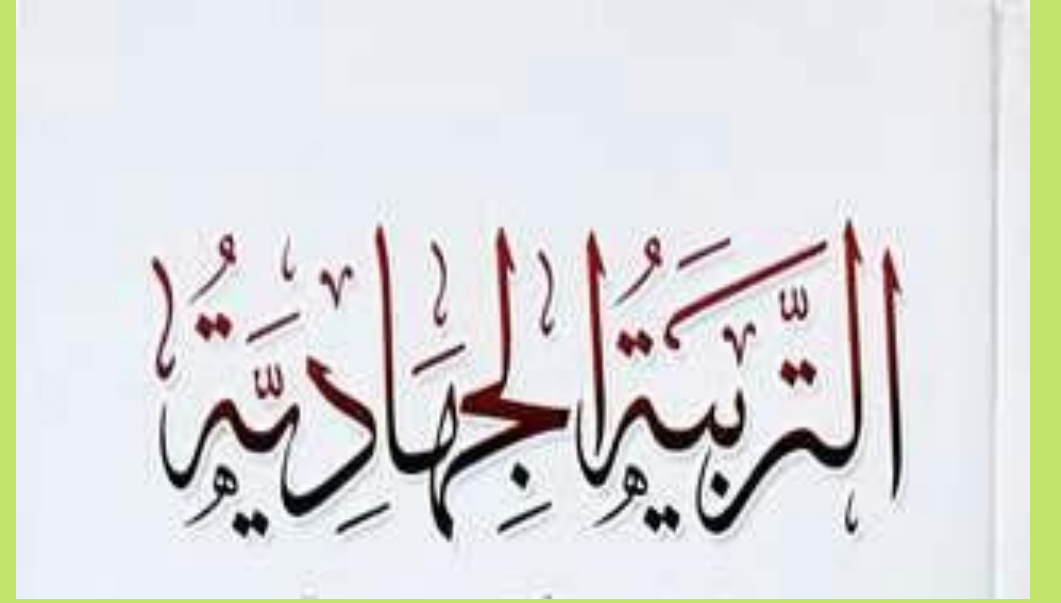 التَّرْبِيَةُ الْجِهَادِيَّةُ